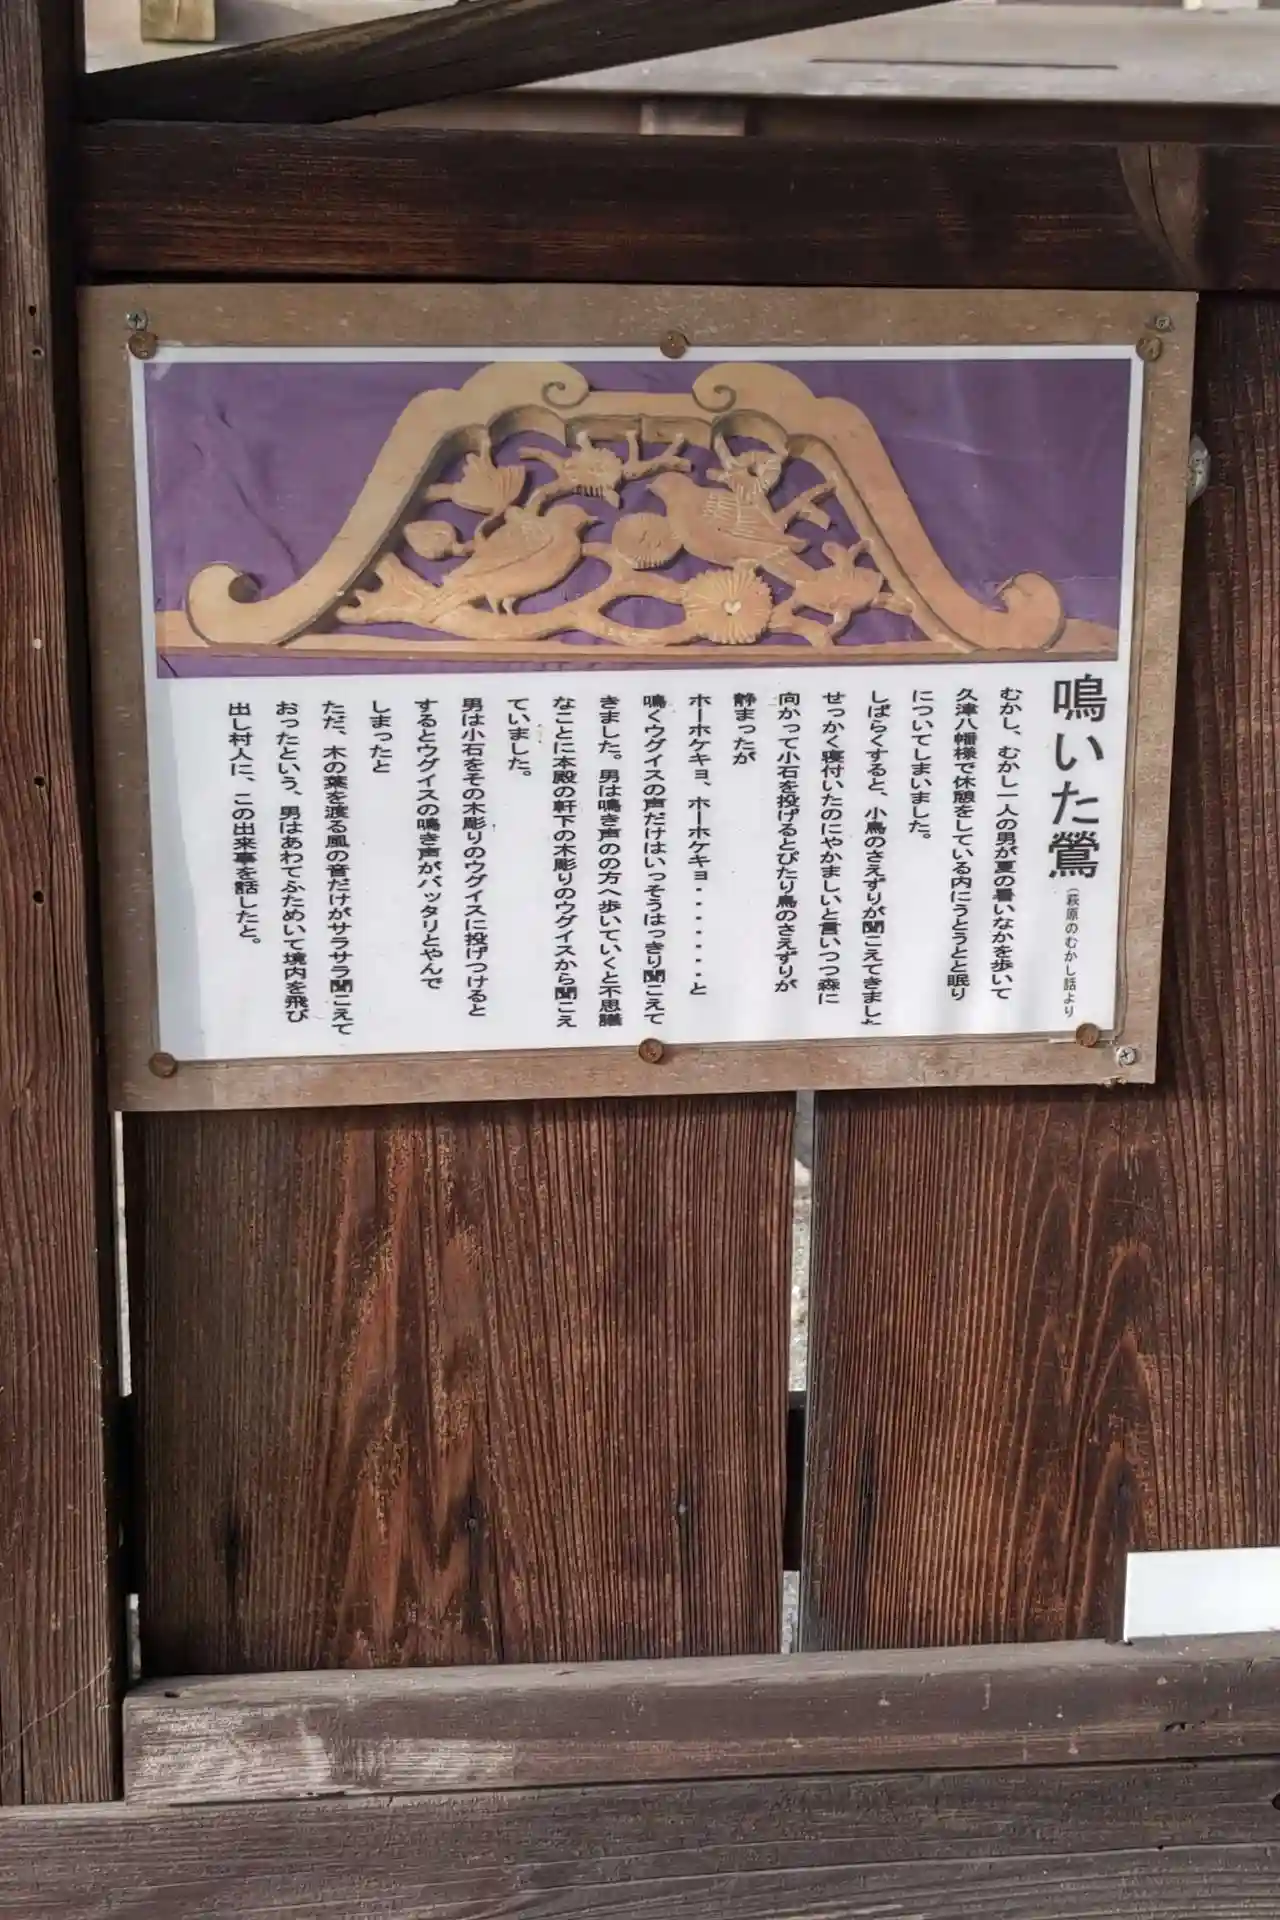 鳴いた鶯
(萩原のむかし話より
むかし、むかし一人の男が夏の暑いなかを歩いて
久津八幡様で休憩をしている内にうとうとと眠り
についてしまいました。
しばらくすると、小鳥のさえずりが聞こえてきました
せっかく寝付いたのにやかましいと言いつつ森に
向かって小石を投げるとぴたり鳥のさえずりが
静まったが
ホーホケキョ、ホーホケキョ・・・・・・・と
鳴くウグイスの声だけはいっそうはっきり聞こえて
きました。男は鳴き声のの方へ歩いていくと不思議
なことに本殿の軒下の木彫りのウグイスから聞こえ
ていました。
男は小石をその木彫りのウグイスに投げつけると
するとウグイスの鳴き声がバッタリとやんで
しまったと
ただ、木の葉を渡る風の音だけがサラサラ聞こえて
おったという、男はあわてふためいて境内を飛び
出し村人に、この出来事を話したと。